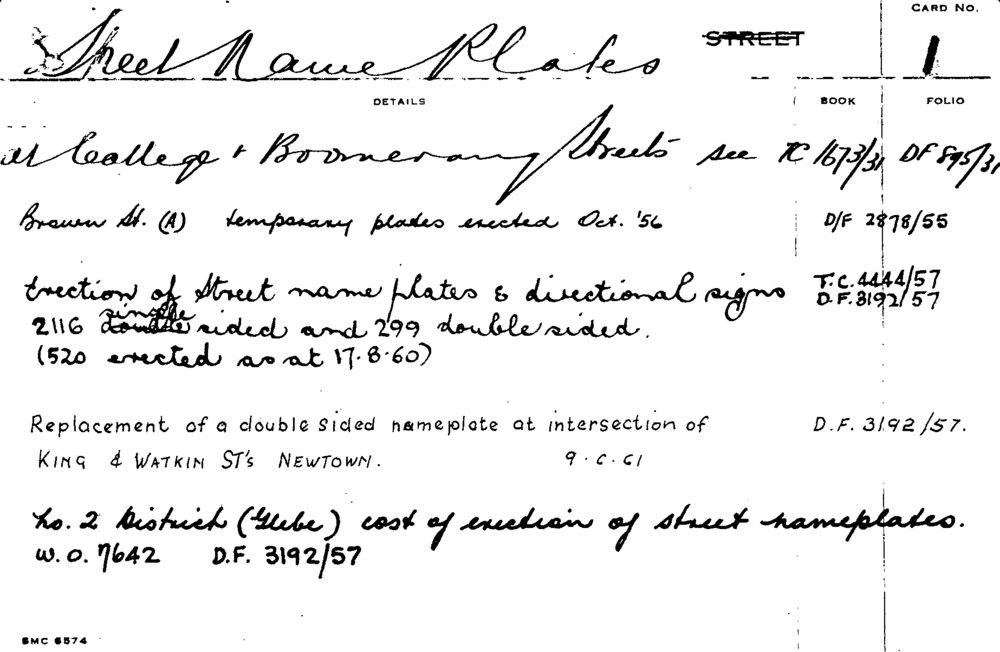 CARD No.
Street Name Plates STREET 1
DETAILS BOOK FOLIO
at College & Boomerang Streets see TC 1673/31 DF 895/31
Brown St. (A) temporary plates erected Oct. '56 D/F 2878/55
Erection of Street name plates & directional signs T.C. 4444/57
D.F. 3192/57
single
2116 double sided and 299 double sided.
(520 erected as at 17.8.60)
Replacement of a double sided nameplate at intersection of D.F. 3192/57.
KING & WATKIN ST's NEWTOWN. 9.6.61
No. 2 District (Glebe) cost of erection of street nameplates.
W.O. 7642 D.F. 3192/57
SMC 6574